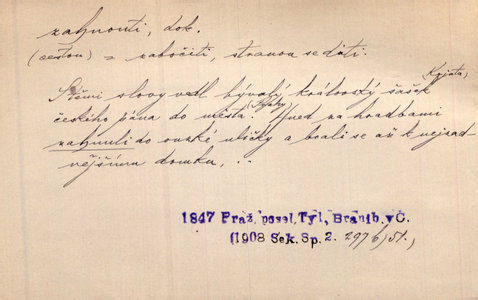 zahnouti, dok.
(cestou) = zabočiti, stranou se dáti.
Kyjata,
S těmi slovy vedl bývalý královský šašek
českého pána do města. (Prahy) Hned za hradbami
zahnuli do ouzké uličky a brali se až k nejzad
nějšímu domku, ..
1847 Praž. posel, Tyl, Branib. v Č.
(1908 Sek. Sp. 2. 297 b/51.)